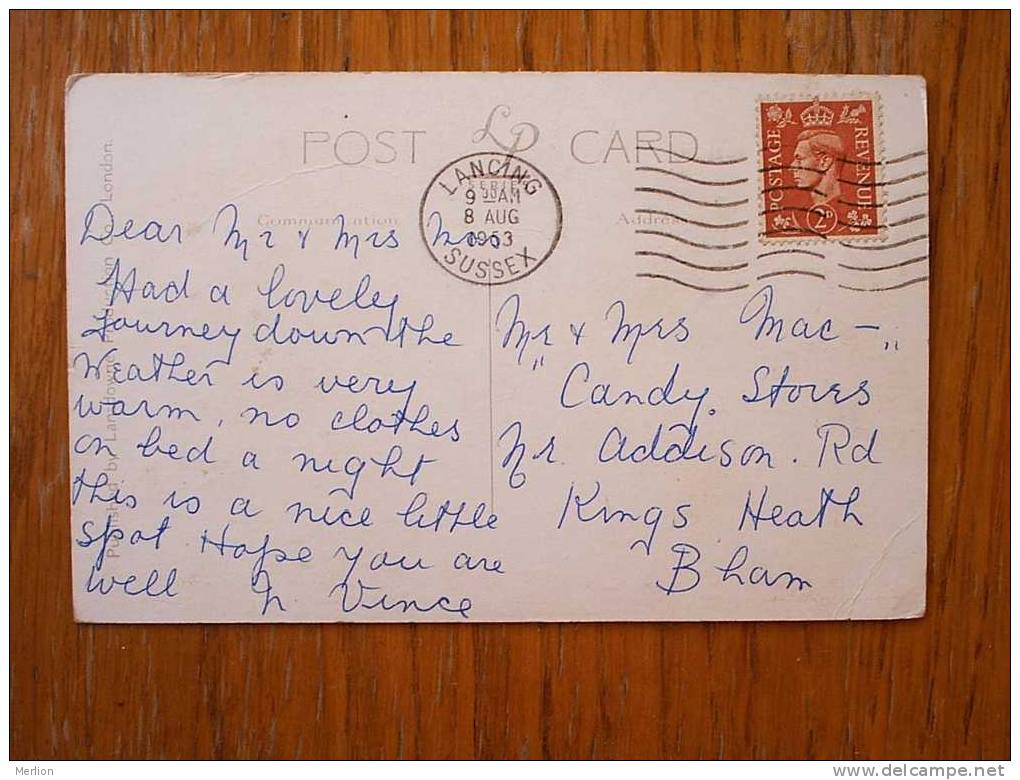 POST LP CARD
LANCING
SERIES
9 - AM
8 AUG
1953
SUSSEX
POSTAGE
REVENUE
2D
Communication
Address
Dear Mr & Mrs Mac
Had a lovely
Journey down the
Weather is very
warm, no clothes
on bed a night
this is a nice little
spot. Hope you are
well
Vince
Mr & Mrs Mac —
" Candy. Stores "
Nr. Addison. Rd
Kings Heath
Bham
Published by Lansdowne London.
Merlion
www.delcampe.net